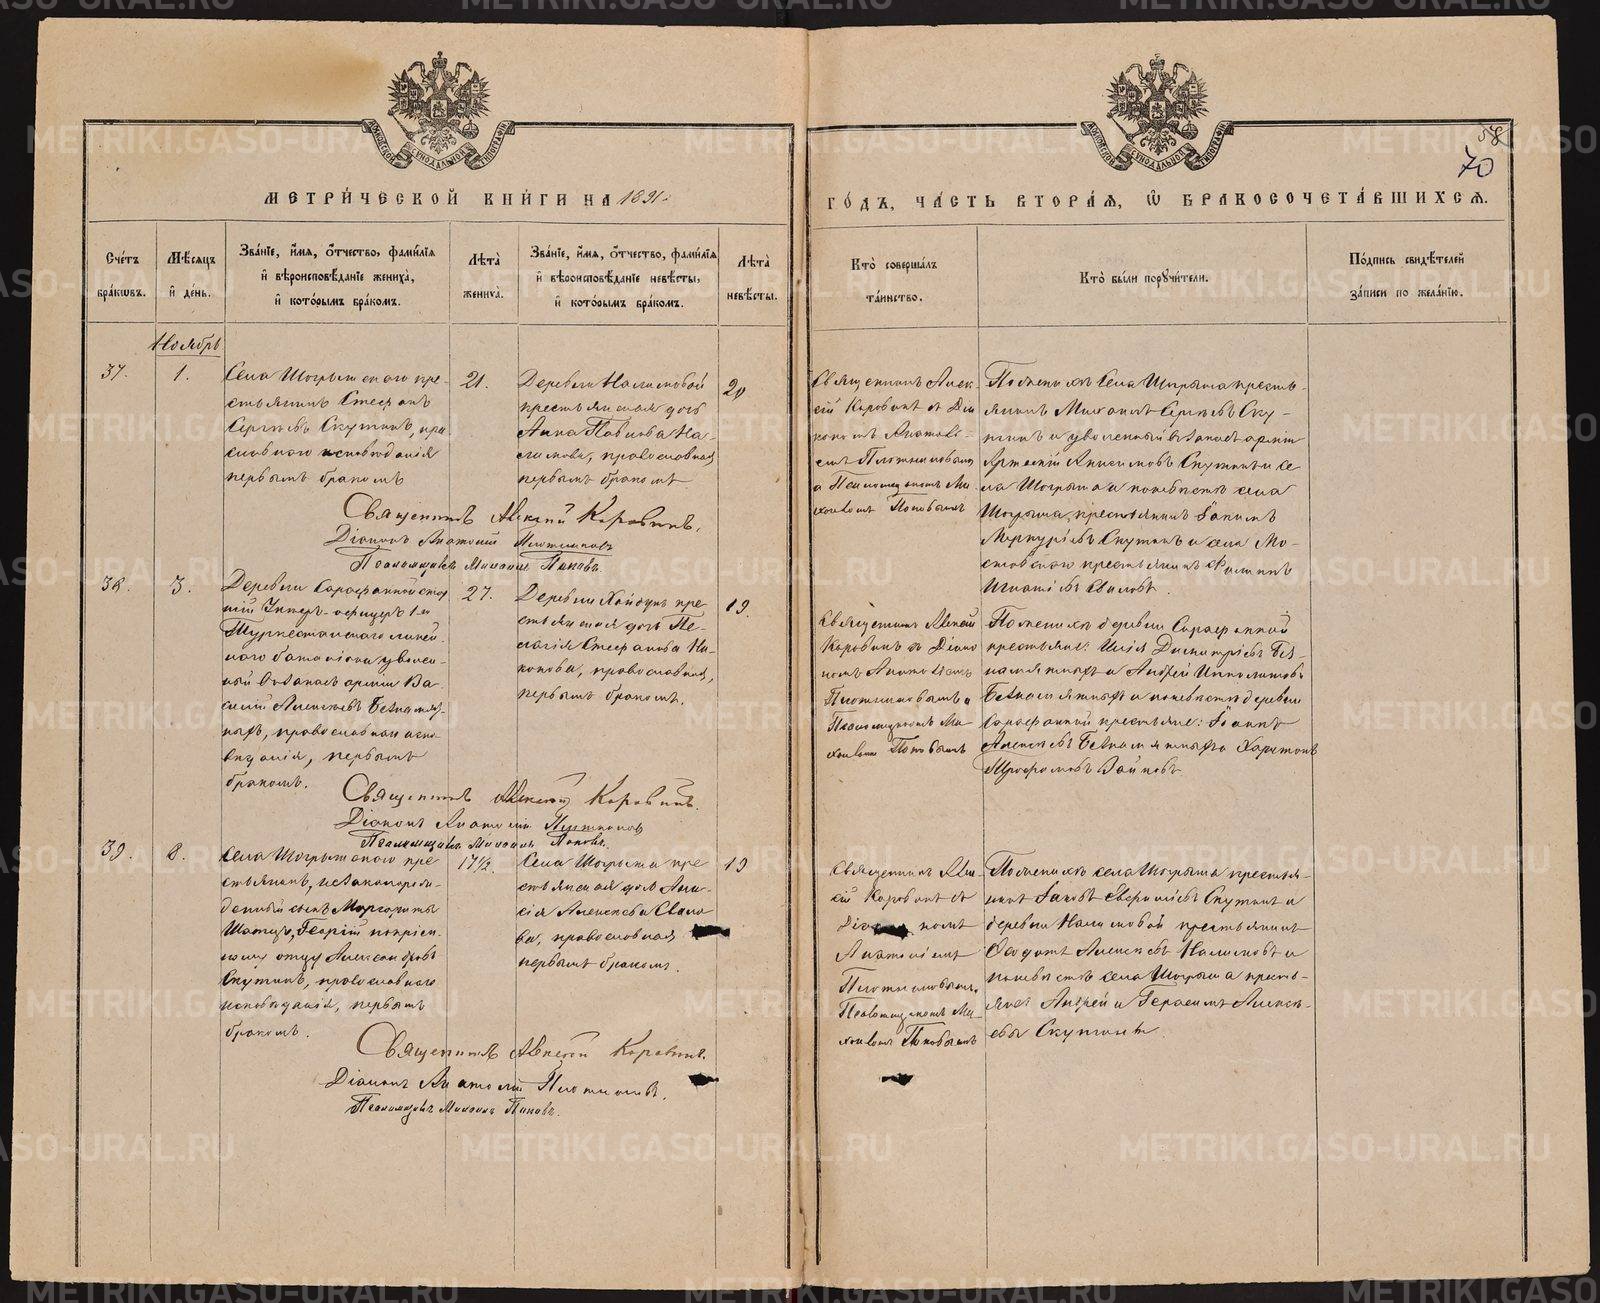 58
70
МЕТРИ́ЧЕСКОЙ КНИ́ГИ НА 1891.
ГО́ДЪ, ЧА́СТЬ ВТОРА́Я, Ѡ БРАКОСОЧЕТА́ВШИХСЯ.
Сче́тъ бра́кѡвъ.
Мѣ́сяцъ и де́нь.
Зва́нїе, и́мя, о́тчество, фами́лїя
и вѣроисповѣ́данїе жениха̀,
и кото́рымъ бра́комъ.
Лѣта̀ жениха̀.
Зва́нїе, и́мя, о́тчество, фами́лїя
и вѣроисповѣ́данїе невѣ́сты,
и кото́рымъ бра́комъ.
Лѣта̀ невѣ́сты.
Кто̀ соверша́лъ
та́инство.
Кто̀ бы́ли пору́чители.
По́дпись свидѣ́телей
за́писи по жела́нїю.
Ноябрь
37.
1.
Села Шогрышскаго кре-
стьянинъ Стефанъ
Сергѣевъ Скутинъ, пра
славнаго исповѣданія
первымъ бракомъ
21.
Деревни Налимовой
крестьянская дочь
Анна Павлова На-
лимова, православная
первымъ бракомъ
20
Священникъ Алек-
сій Коровинъ съ Діа
кономъ Анатолі-
емъ Плотниковымъ
и Псаломщикомъ Ми-
хаиломъ Поповымъ
По женихѣ села Шогрыша кресть-
янинъ Михаилъ Сергѣевъ Ску-
тинъ и уволенный въ запасъ арміи
Артемій Анисимовъ Скутинъ и се
ла Шогрыша и по невѣстѣ села
Шогрыша, крестьянинъ Іакимъ
Меркурьевъ Скутинъ и села Мо-
стовскаго крестьянинъ
Игнатіевъ
Священникъ Алексій Коровинъ.
Діаконъ Анатолій Плотниковъ
Псаломщикъ Михаилъ Поповъ.
38.
3.
Деревни Сарафанной стар
шій Унтеръ-офицеръ 1-го
Туркестанскаго линей
наго батальона уволен-
ный въ запасъ арміи Ва-
силій Алексѣевъ Безпамят-
ныхъ, православнаго испо
вѣданія, первымъ
бракомъ.
27.
Деревни кре-
стьянская дочь Пе-
лагія Стефанова Ни-
конова, православная,
первымъ бракомъ.
19.
Священникъ Алексій
Коровинъ съ Діако
номъ Анатоліемъ
Плотниковымъ и
Псаломщикомъ Ми-
хаиломъ Поповымъ
По женихѣ деревни Сарафанной
крестьяне: Илія Димитріевъ Без-
памятныхъ и Андрей
Безпамятныхъ и по невѣстѣ деревни
Сарафанной крестьяне: Іоаннъ
Алексѣевъ Безпамятныхъ и Харитонъ
Трофимовъ
Священникъ Алексій Коровинъ.
Діаконъ Анатолій Плотниковъ
Псаломщикъ Михаилъ Поповъ.
39.
8.
Села Шогрышскаго кре
стьянинъ, незаконорож-
денный сынъ Маргариты
Георгій по крест-
ному отцу Александровъ
Скутинъ, православнаго
исповѣданія, первымъ
бракомъ.
17½.
Села Шогрыша кре
стьянская дочь
Алексѣева
православная
первымъ бракомъ.
19
Священникъ Алек
сій Коровинъ съ
кономъ
Анатоліемъ
Плотниковымъ,
Псаломщикомъ Ми-
хаиломъ Поповымъ
По женихѣ села Шогрыша крестья-
нинъ Іаковъ Скутинъ и
деревни Налимовой крестьянинъ
Ѳеодотъ Алексѣевъ Налимовъ и
по невѣстѣ села Шогрыша кресть-
яне: Андрей и Герасимъ Алексѣ-
евы Скутины
Священникъ Алексій Коровинъ.
Діаконъ Анатолій Плотниковъ.
Псаломщикъ Михаилъ Поповъ.
METRIKI.GASO-URAL.RU